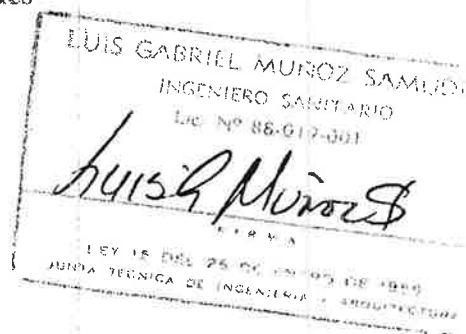 LUIS GABRIEL MUÑOZ SAMUDI
INGENIERO SANITARIO
Lic. Nº 88-017-001
Luis G Muñoz S
FIRMA
LEY 15 DEL 26 DE ENERO DE 1959
JUNTA TECNICA DE INGENIERIA Y ARQUITECTURA